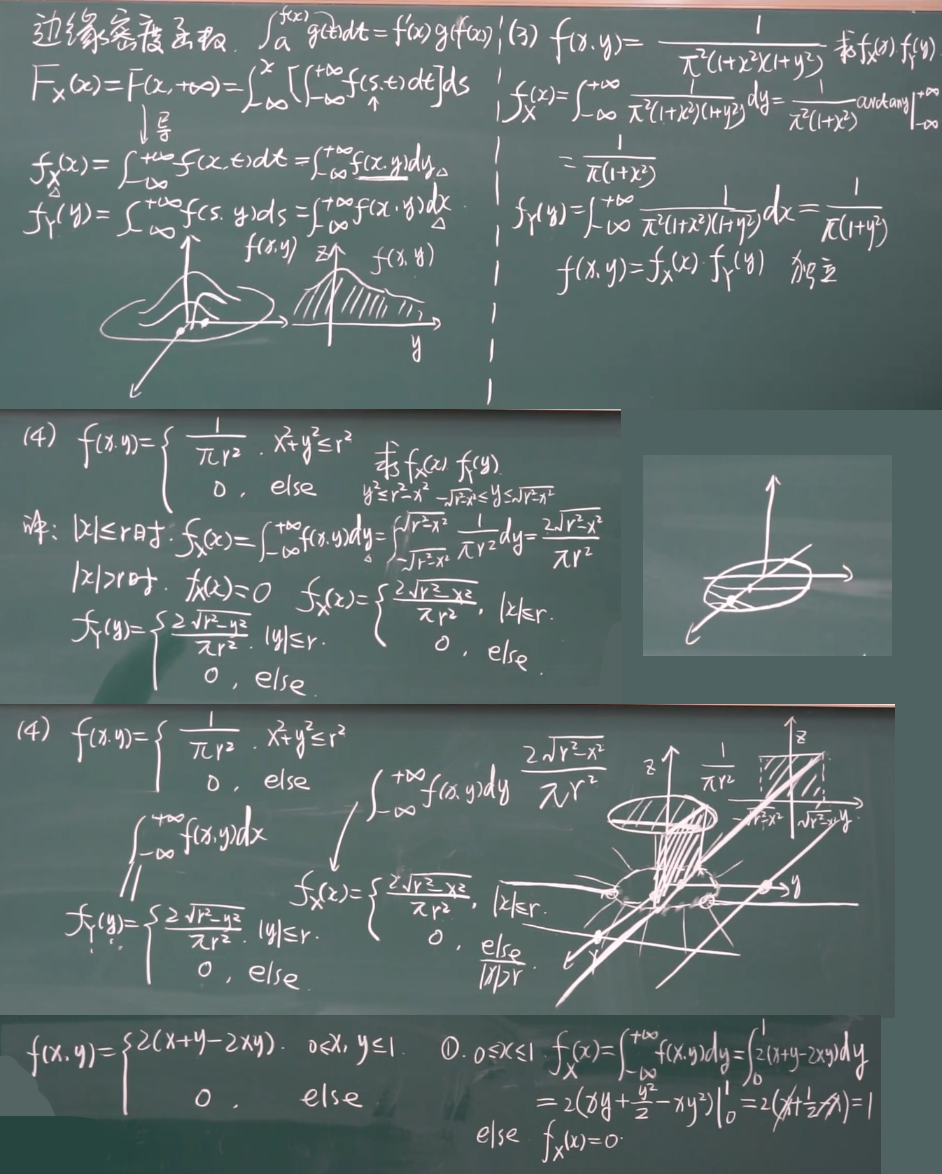 边缘密度函数. ∫_a^{f(x)} g(t)dt = f'(x)g(f(x))
F_X(x) = F(x, +∞) = ∫_{-∞}^{x} [∫_{-∞}^{+∞} f(s,t)dt]ds
↓导
f_X(x) = ∫_{-∞}^{+∞} f(x,t)dt = ∫_{-∞}^{+∞} f(x,y)dy
f_Y(y) = ∫_{-∞}^{+∞} f(s,y)ds = ∫_{-∞}^{+∞} f(x,y)dx
f(x,y) z f(x,y)
y
(3) f(x,y) = 1/(π²(1+x²)(1+y²)) 求f_X(x) f_Y(y)
f_X(x) = ∫_{-∞}^{+∞} 1/(π²(1+x²)(1+y²)) dy = 1/(π²(1+x²)) arctany|_{-∞}^{+∞}
= 1/(π(1+x²))
f_Y(y) = ∫_{-∞}^{+∞} 1/(π²(1+x²)(1+y²)) dx = 1/(π(1+y²))
f(x,y) = f_X(x)·f_Y(y) 独立
(4) f(x,y) = { 1/(πr²), x²+y²≤r²
0, else
求f_X(x) f_Y(y)
y²≤r²-x² -√(r²-x²)≤y≤√(r²-x²)
解: |x|≤r时. f_X(x) = ∫_{-∞}^{+∞} f(x,y)dy = ∫_{-√(r²-x²)}^{√(r²-x²)} 1/(πr²) dy = 2√(r²-x²)/(πr²)
|x|>r时. f_X(x) = 0 f_X(x) = { 2√(r²-x²)/(πr²), |x|≤r.
0, else.
f_Y(y) = { 2√(r²-y²)/(πr²). |y|≤r.
0, else.
(4) f(x,y) = { 1/(πr²), x²+y²≤r²
0, else
∫_{-∞}^{+∞} f(x,y)dy 2√(r²-x²)/(πr²)
∫_{-∞}^{+∞} f(x,y)dx
f_X(x) = { 2√(r²-x²)/(πr²), |x|≤r.
0, else |x|>r
f_Y(y) = { 2√(r²-y²)/(πr²). |y|≤r.
0, else.
z 1/(πr²) z
-√(r²-x²) √(r²-x²) y
y
x
f(x,y) = { 2(x+y-2xy). 0≤x, y≤1
0, else
①. 0≤x≤1 f_X(x) = ∫_{-∞}^{+∞} f(x,y)dy = ∫_0^1 2(x+y-2xy)dy
= 2(xy+y²/2-xy²)|_0^1 = 2(x+1/2-x) = 1
else f_X(x) = 0.